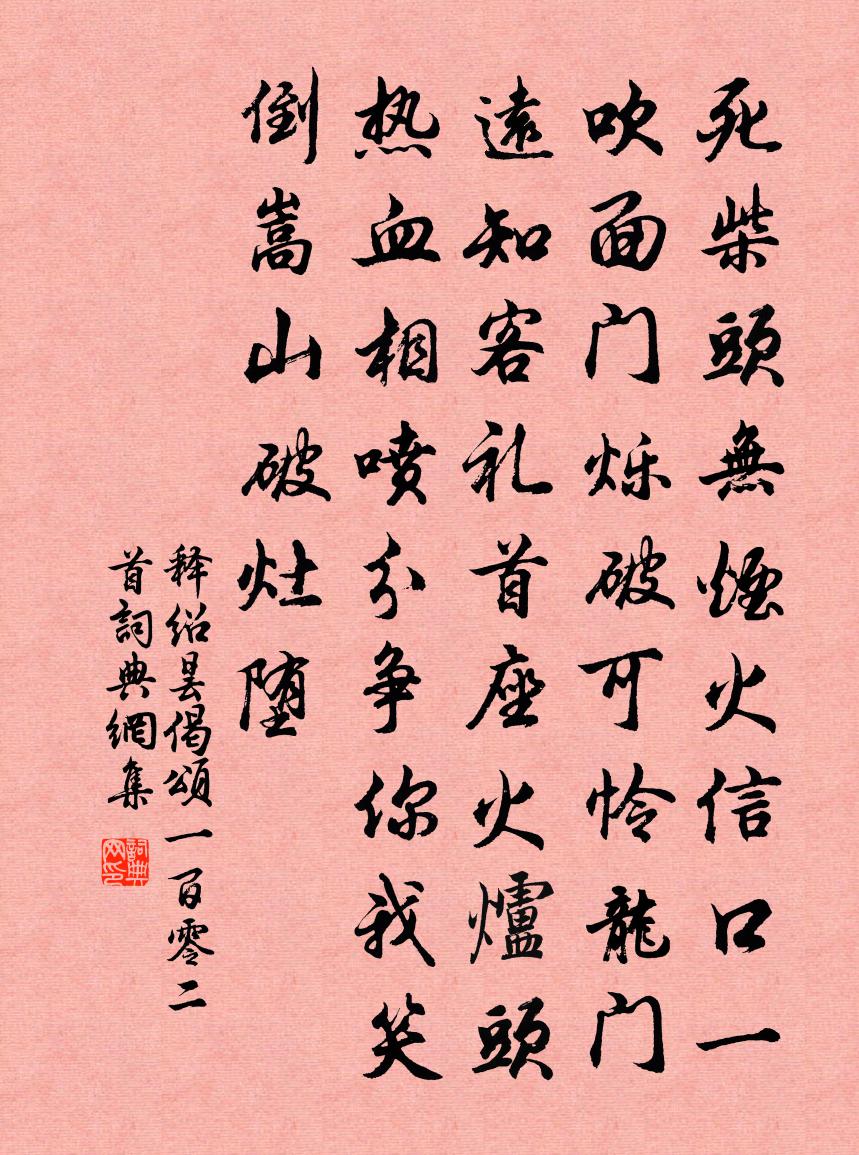 死柴頭無煙火信口一
吹面门烁破可怜龍门
遠知客礼首座火爐頭
热血相喷分争你我笑
倒嵩山破灶堕
释绍昙偈頌一百零二
首詞典網集
詞典网印